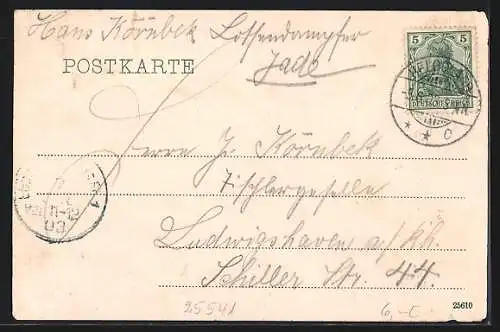 Hans Körnbek Lotsendampfer
Jade
POSTKARTE
5 5
DEUTSCHES REICH
HELGOLAND
* * c
Herrn J. Körnbek
Tischlergeselle
Ludwigshaven a/Rh.
Schiller Str. 44.
11-12
03
25541
6,-C
25610